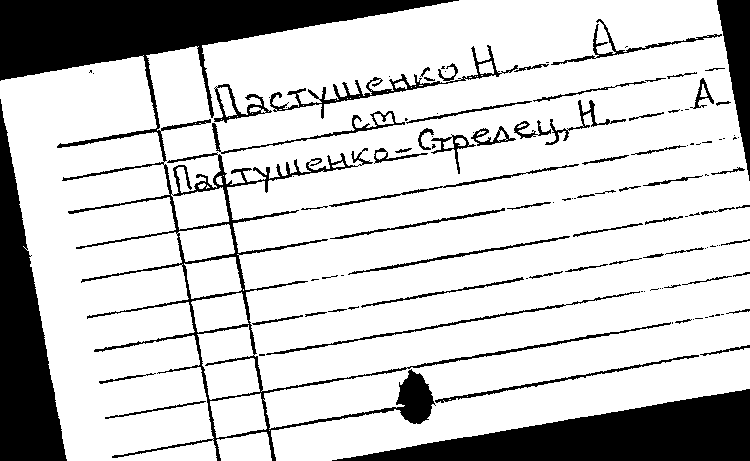 Пастушенко Н. А
ст.
Пастушенко-Стрелец, Н. А